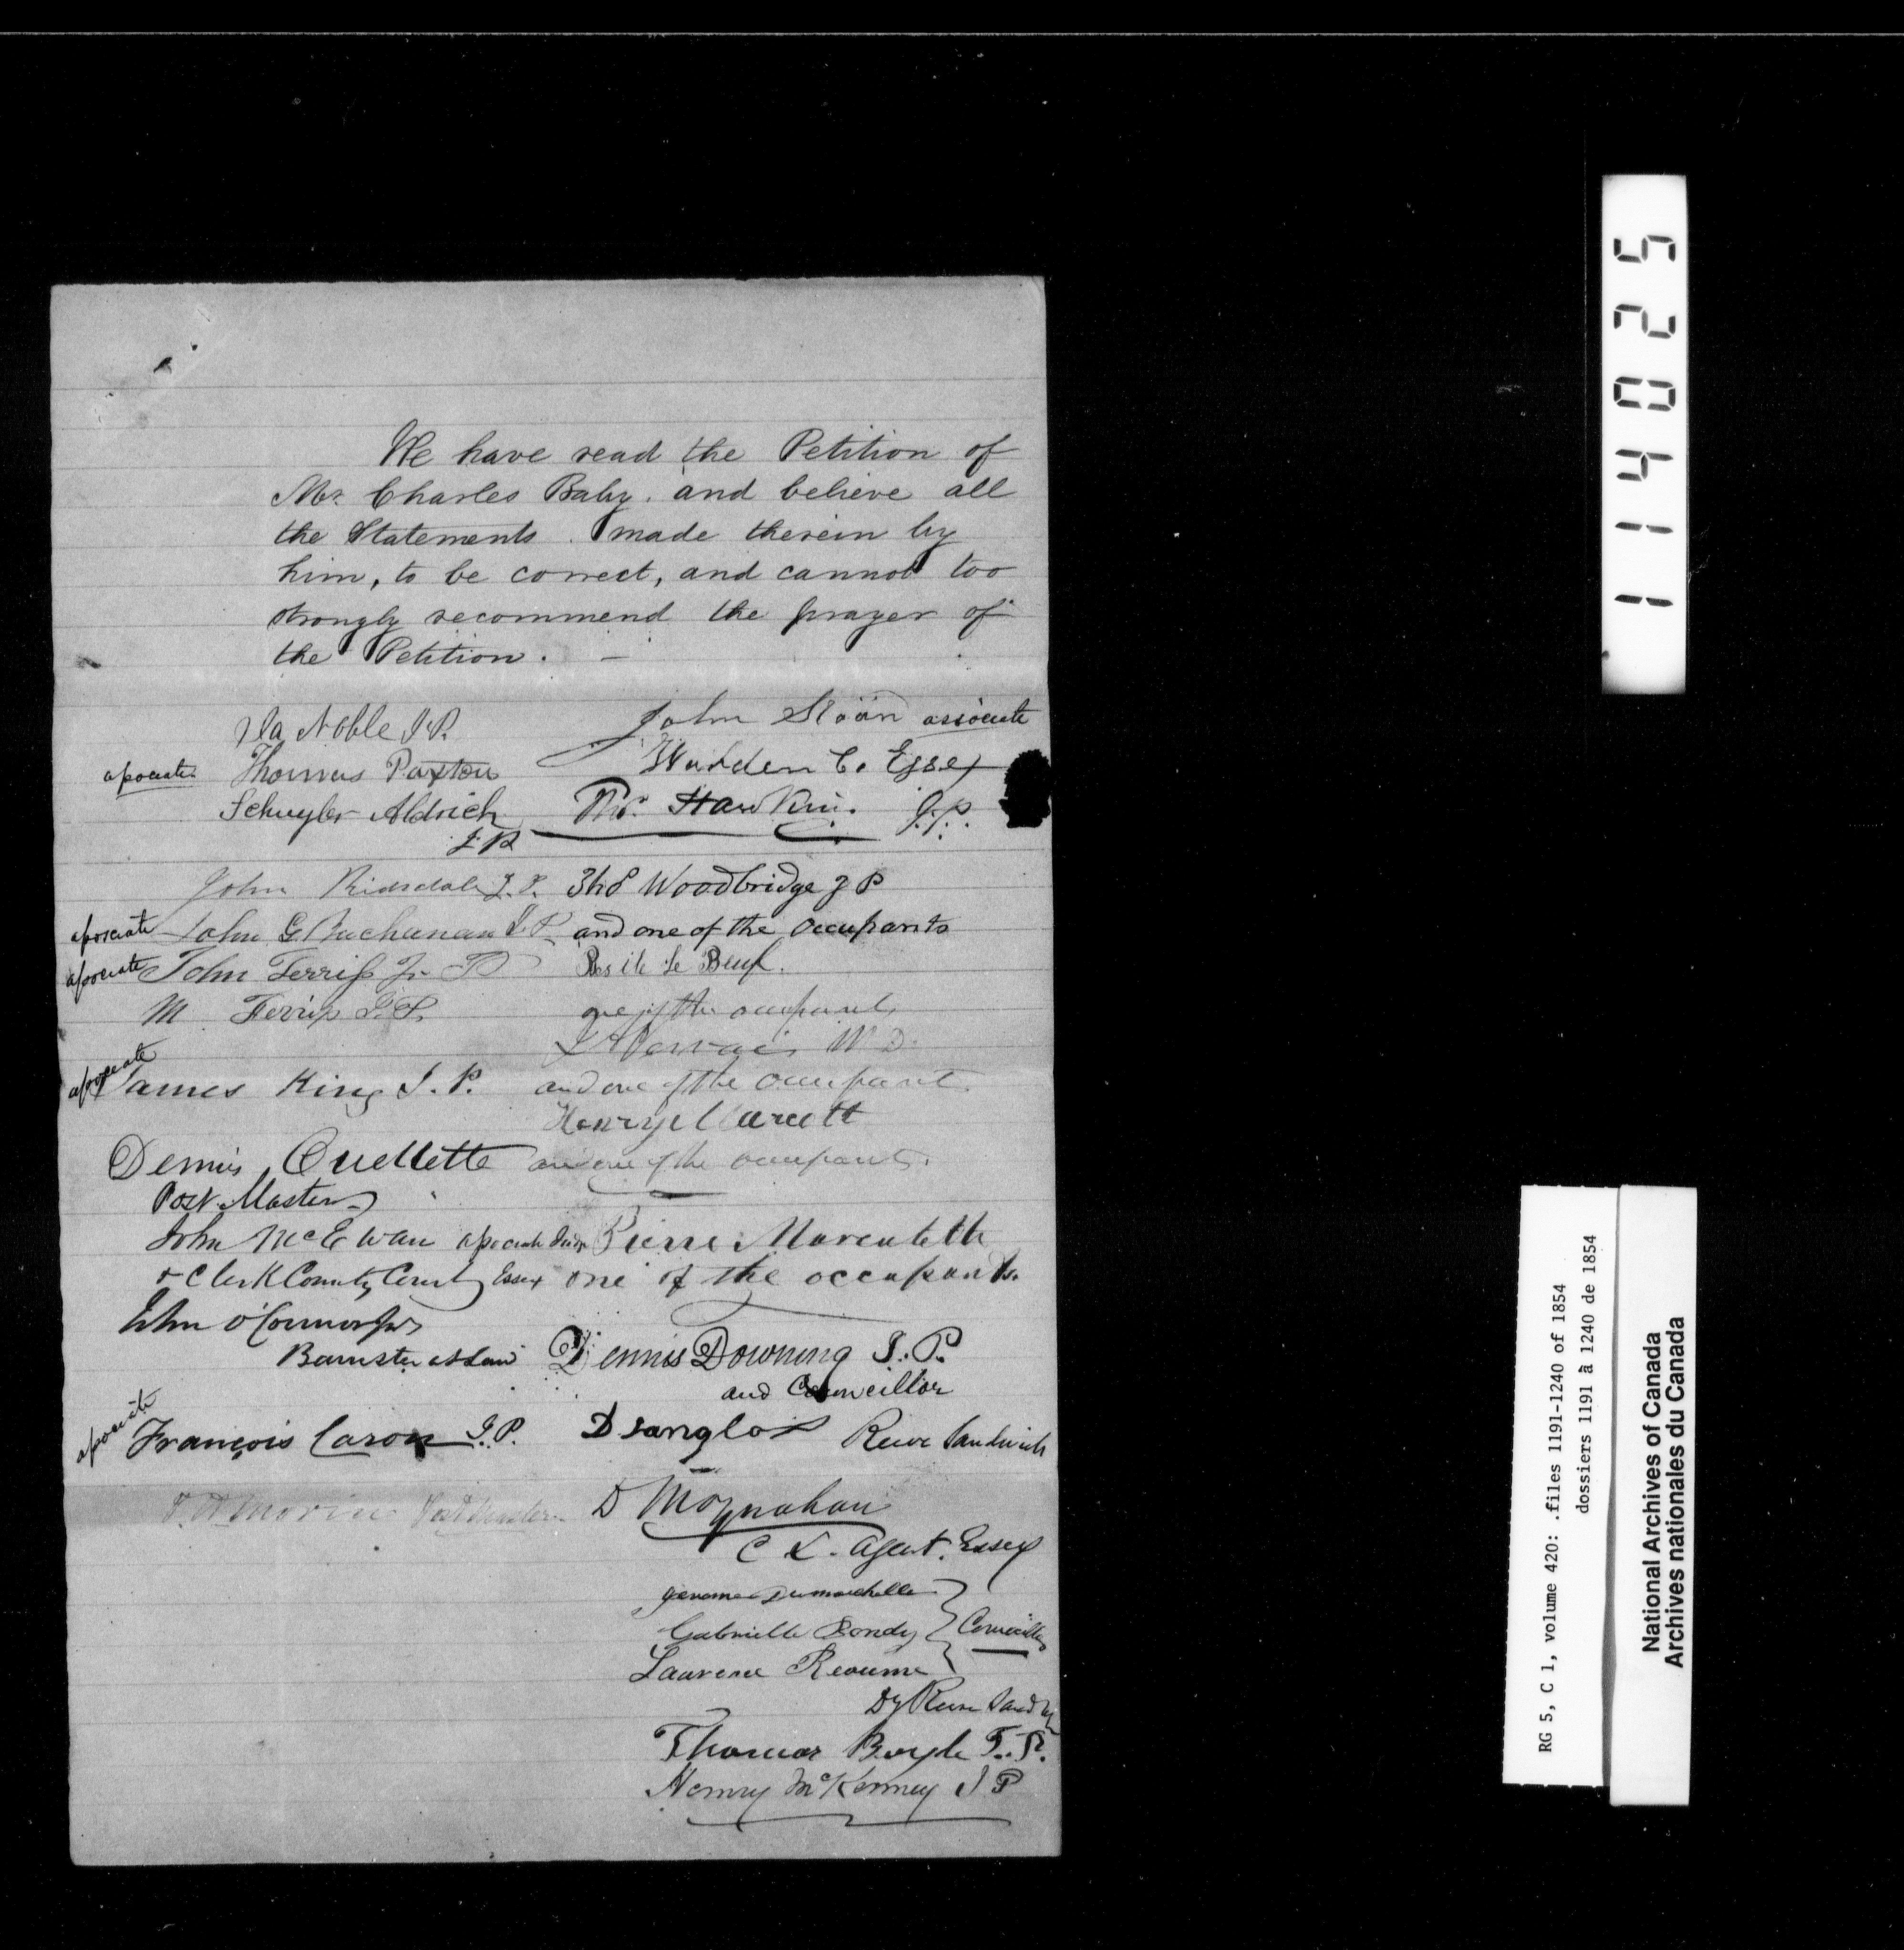 We have read the Petition of
Mr. Charles Baby. and believe all
the Statements. made therein by
him, to be correct, and cannot too
strongly recommend the prayer of
the Petition. —
Ila Noble J.P.
associate Thomas Paxton
Schuyler Aldrich
J.P.
John Ridsdale J.P.
associate John G. Buchanan J.P.
associate John Ferriss Jr
M Ferriss J.P.
associate James King J.P.
Dennis Ouellette
Post Master
John McEwan associate Judge
& Clerk County Court Essex
John O'Connor Jr
Barrister at Law
associate François Caron J.P.
Morin Post Master
John Sloan associate
Warden Co. Essex
Tho. Hawkins J.P.
Woodbridge J P
and one of the Occupants
Basile Le Beuf.
one of the occupants
M D.
and one of the Occupants.
Henry
and one of the occupants.
Pierre Marentette
one of the occupants.
Dennis Downing J.P.
and Councillor
D Langlois Reeve Sandwich
D Moynahan
C L. Agent. Essex
Jerome Dumouchelle
Gabrielle Bondy Councillors
Laurence Reaume
Dy Reeve Sandw
Thomas Boyle J.P.
Henry McKenney J P
114025
RG 5, C 1, volume 420: .files 1191-1240 of 1854
dossiers 1191 à 1240 de 1854
National Archives of Canada
Archives nationales du Canada